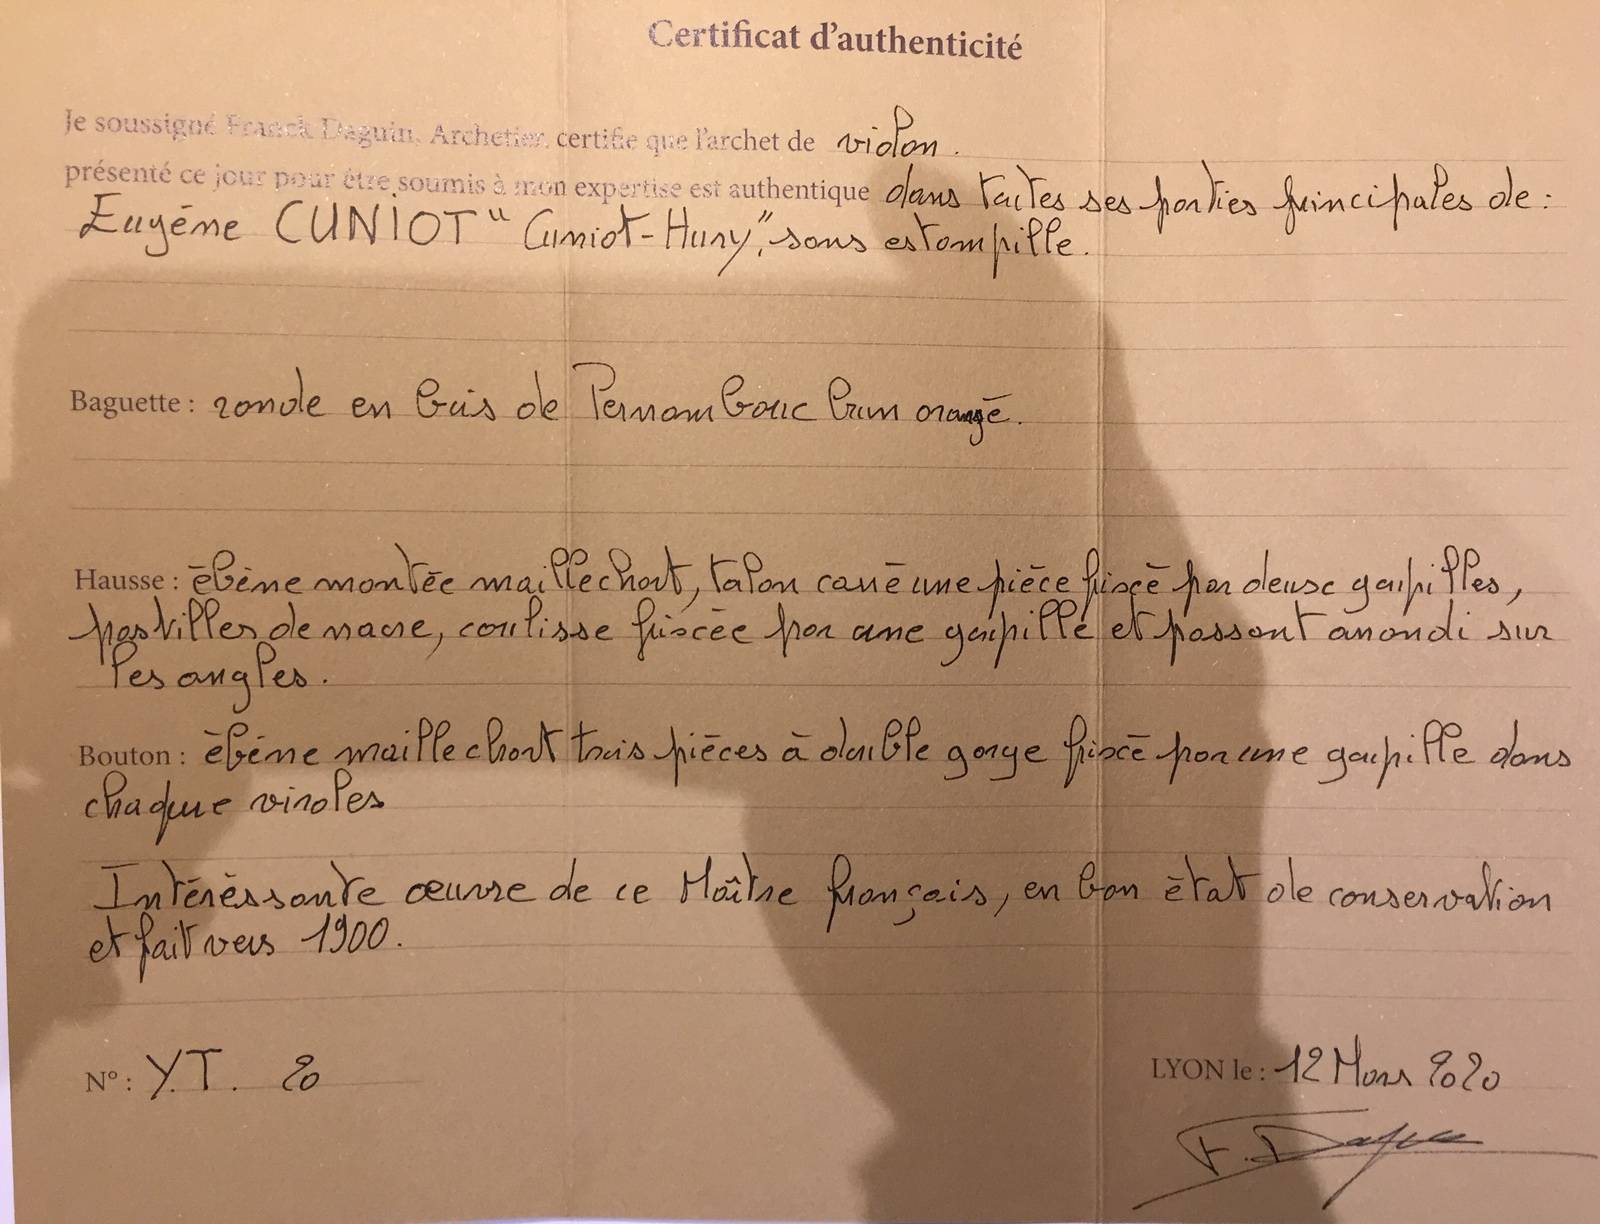 Certificat d'authenticité
Je soussigné Franck Daguin, Archetier, certifie que l'archet de violon.
présenté ce jour pour être soumis à mon expertise est authentique dans toutes ses parties principales de :
Eugène CUNIOT "Cuniot-Hury", sans estampille.
Baguette : ronde en bois de Pernambouc brun orangé.
Hausse : ébène montée maillechort, talon carré une pièce fixé par deux goupilles,
pastilles de nacre, coulisse fixée par une goupille et passant arrondi sur
les angles.
Bouton : ébène maillechort trois pièces à double gorge fixé par une goupille dans
chaque viroles
Intéréssante œuvre de ce Maître français, en bon état de conservation
et fait vers 1900.
N° : Y.T. 20
LYON le : 12 Mars 2020
F. Daguin